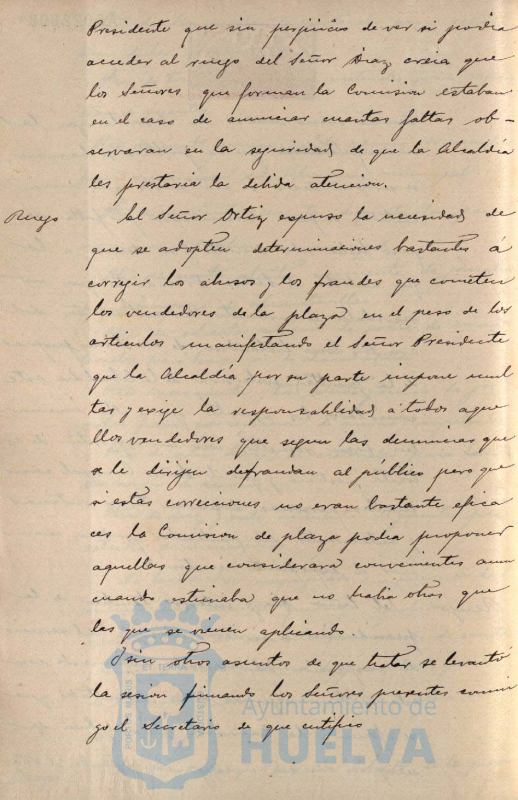 Presidente que sin perjuicio de ver si podia
acceder al ruego del Señor Diaz creia que
los Señores que forman la Comision estaban
en el caso de anunciar cuantas faltas ob-
servaran en la seguridad de que la Alcaldía
les prestaria la debida atencion.
Ruego El Señor Ortiz expuso la necesidad de
que se adopten determinaciones bastantes á
corregir los abusos y los fraudes que cometen
los vendedores de la plaza en el peso de los
articulos manifestando el Señor Presidente
que la Alcaldía por su parte impone mul
tas y exige la responsabilidad á todos aque
llos vendedores que segun las denuncias que
se le dirijen defraudan al público pero que
si estas correcciones no eran bastante efica
ces la Comision de plaza podia proponer
aquellas que considerara convenientes aun
cuando estimaba que no habia otras que
las que se vienen aplicando.
Y sin otros asuntos de que tratar se levantó
la sesion firmando los Señores presentes conmi
go el Secretario de que certifico
Ayuntamiento de
HUELVA